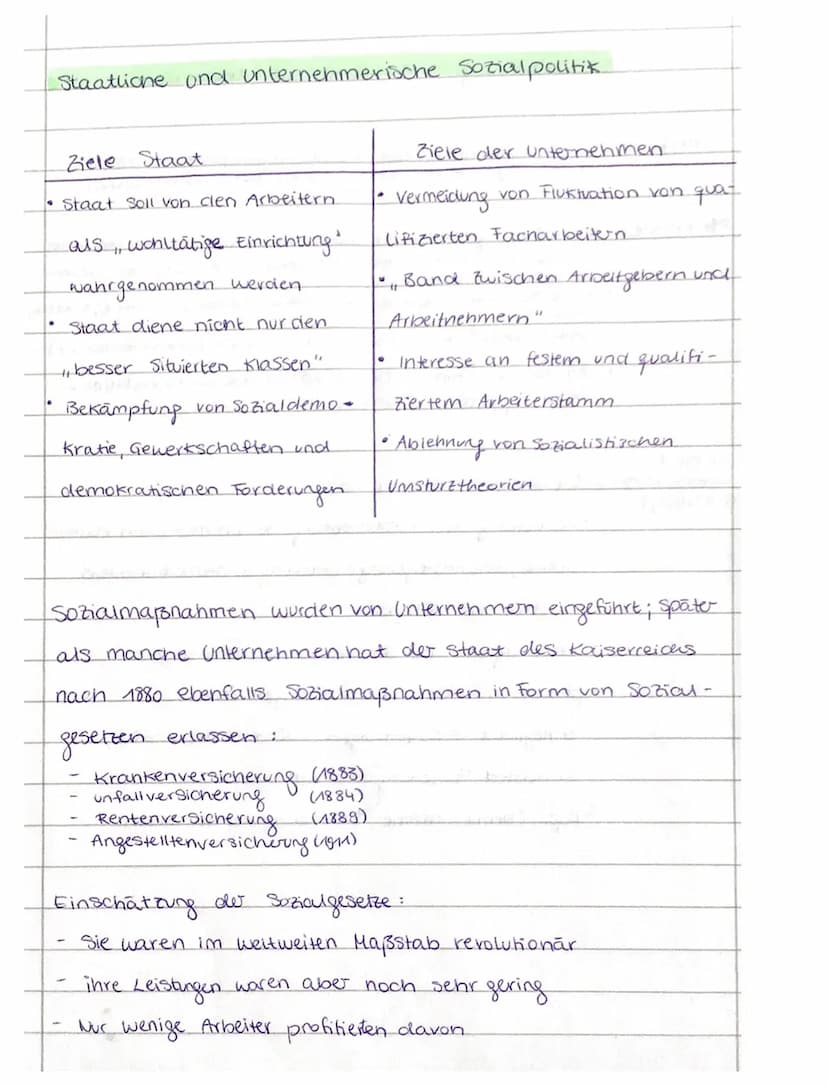 Staatliche und unternehmerische Sozialpolitik
Ziele Staat
• Staat soll von den Arbeitern
als „wohltätige Einrichtung'
wahrgenommen werden
• Staat diene nicht nur den
„besser situierten Klassen"
• Bekämpfung von Sozialdemo-
kratie, Gewerkschaften und
demokratischen Forderungen
Ziele der Unternehmen
• Vermeidung von Fluktuation von qua-
lifizierten Facharbeitern
• „Band zwischen Arbeitgebern und
Arbeitnehmern"
• Interesse an festem und qualifi-
ziertem Arbeiterstamm
• Ablehnung von sozialistischen
Umsturztheorien
Sozialmaßnahmen wurden von Unternehmen eingeführt; später
als manche Unternehmen hat der Staat des Kaiserreichs
nach 1880 ebenfalls Sozialmaßnahmen in Form von Sozial-
gesetzen erlassen:
- Krankenversicherung (1883)
- Unfallversicherung (1884)
- Rentenversicherung (1889)
- Angestelltenversicherung (1911)
Einschätzung der Sozialgesetze:
- Sie waren im weltweiten Maßstab revolutionär
- ihre Leistungen waren aber noch sehr gering
- Nur wenige Arbeiter profitierten davon